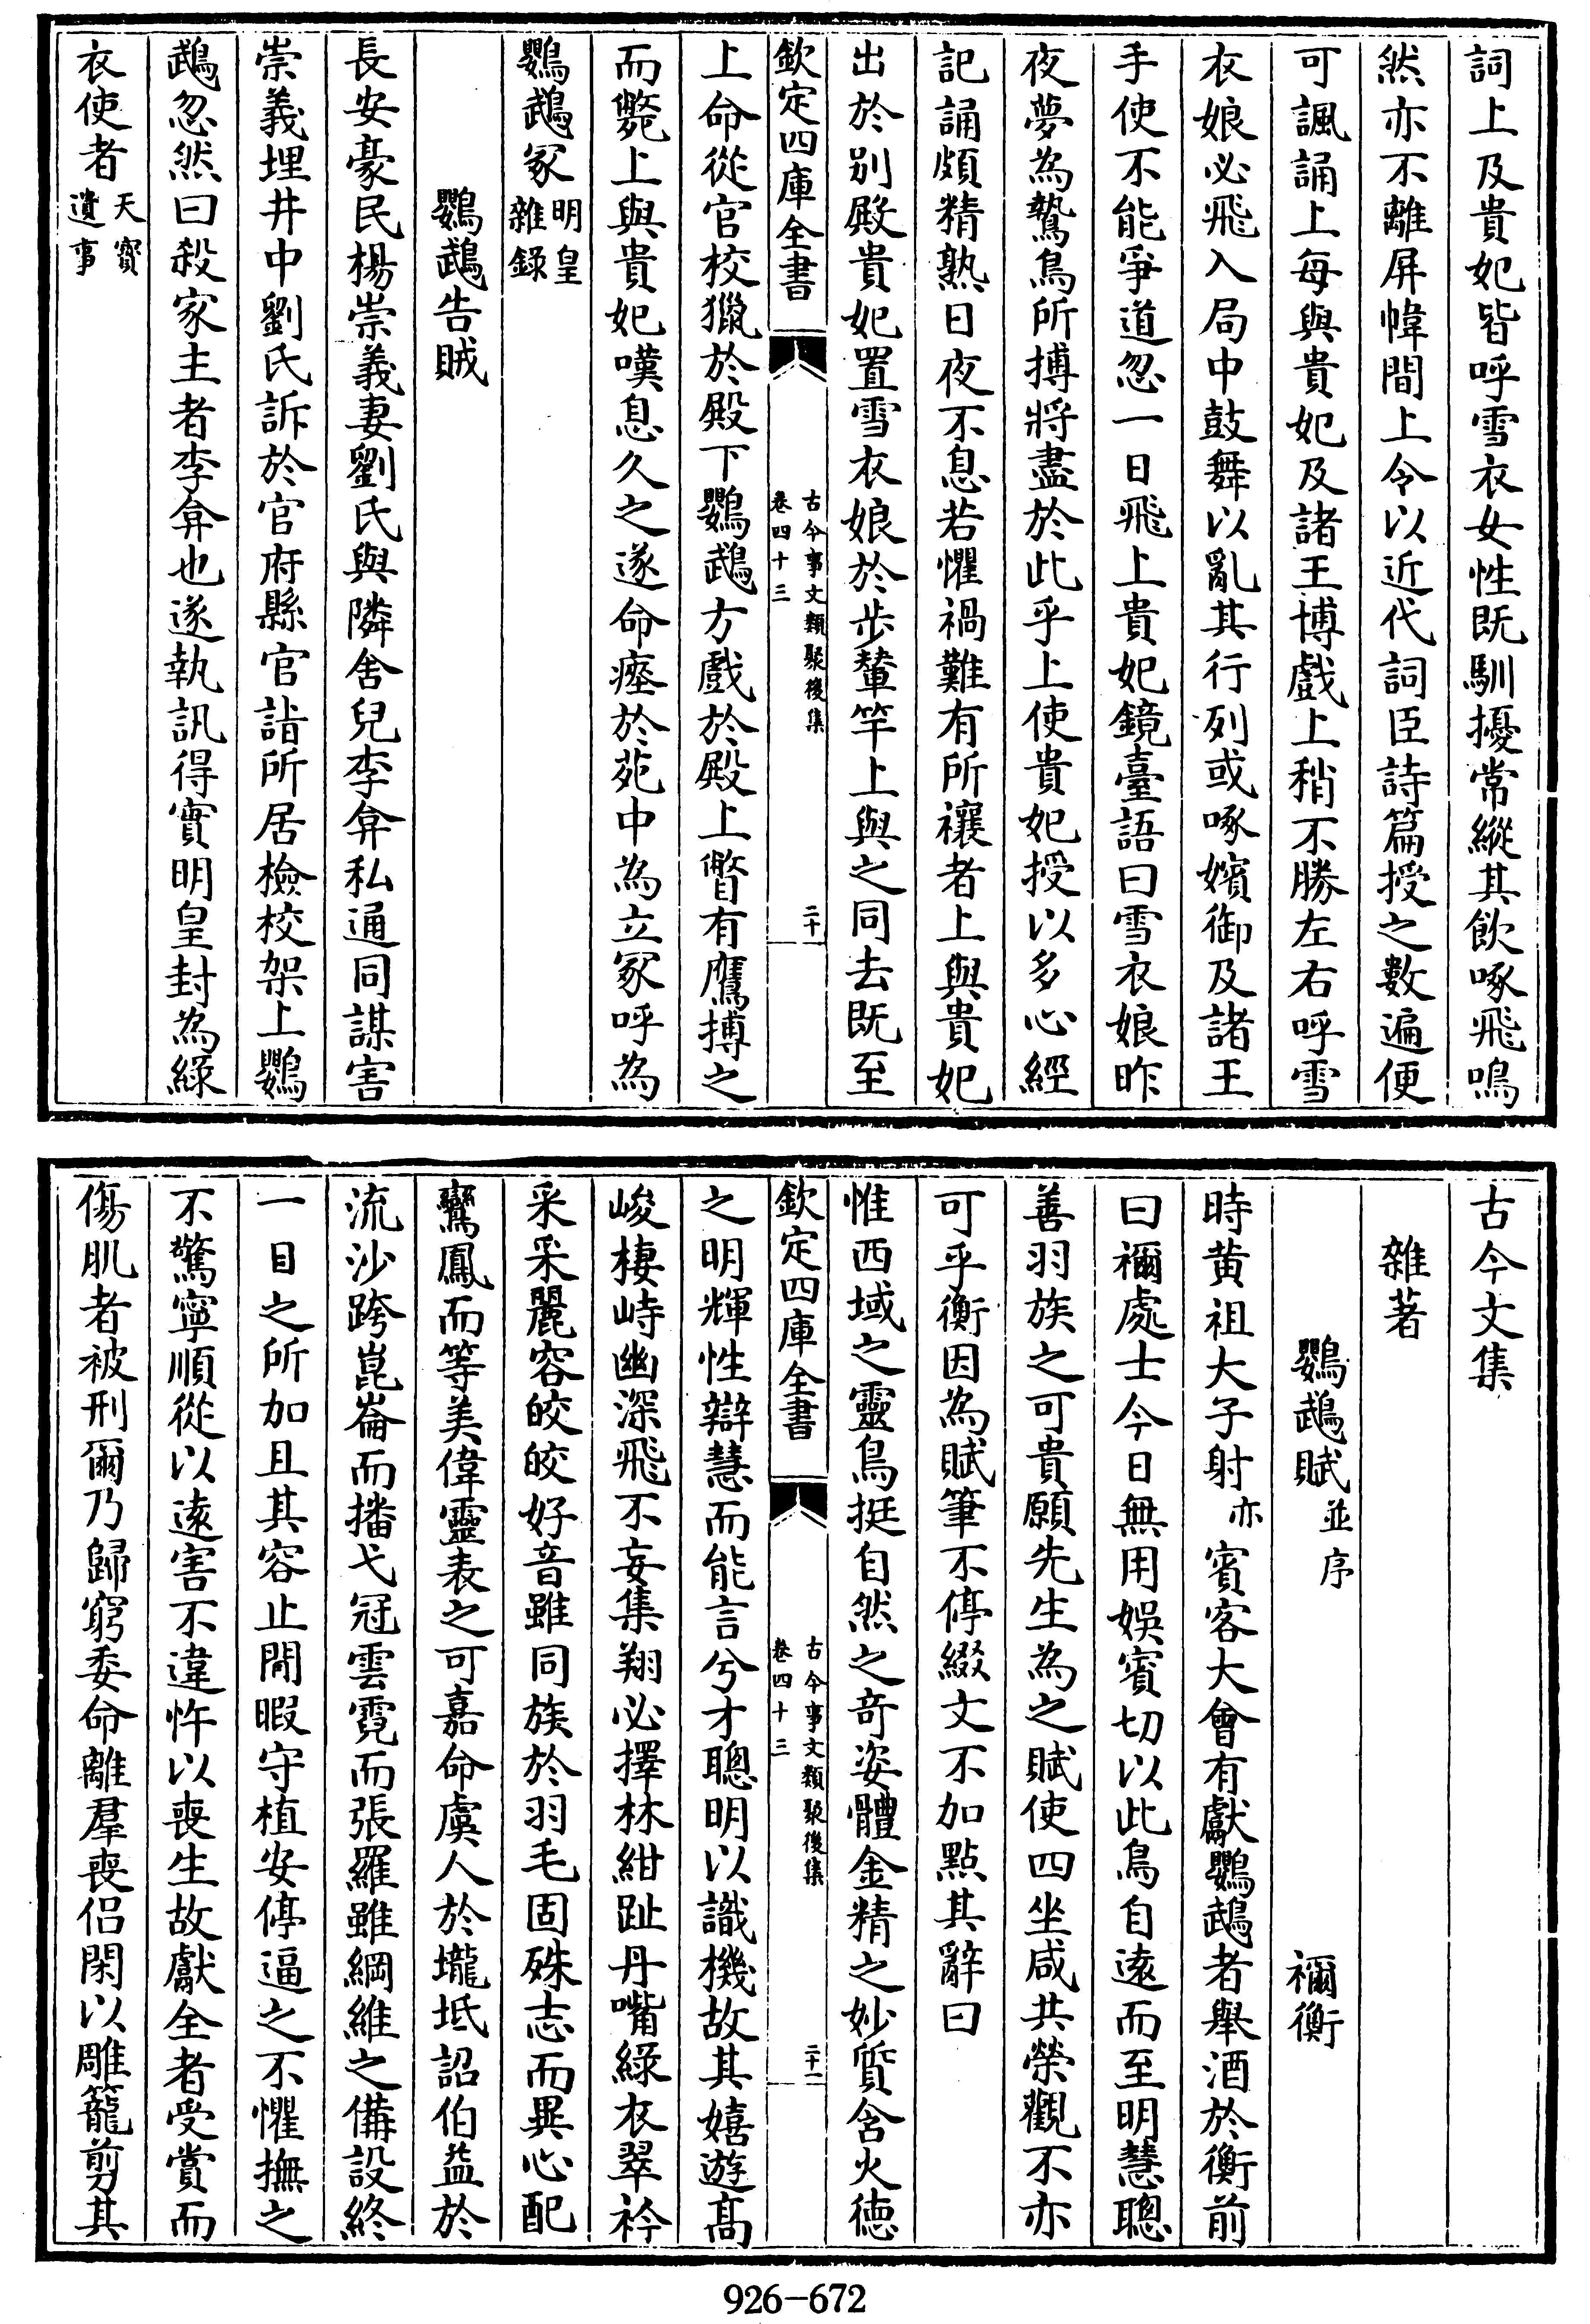 詞上及貴妃皆呼雪衣女性既馴擾常縱其飲啄飛鳴
然亦不離屏幃間上令以近代詞臣詩篇授之數遍便
可諷誦上每與貴妃及諸王博戲上稍不勝左右呼雪
衣娘必飛入局中鼓舞以亂其行列或啄嬪御及諸王
手使不能爭道忽一日飛上貴妃鏡臺語曰雪衣娘昨
夜夢為鷙鳥所搏將盡於此乎上使貴妃授以多心經
記誦頗精熟日夜不息若懼禍難有所禳者上與貴妃
出於別殿貴妃置雪衣娘於步輦竿上與之同去既至
欽定四庫全書
古今事文類聚後集
卷四十三
二十
上命從官校獵於殿下鸚鵡方戲於殿上瞥有鷹搏之
而斃上與貴妃嘆息久之遂命瘞於苑中為立冢呼為
鸚鵡冢明皇雜錄
鸚鵡告賊
長安豪民楊崇義妻劉氏與隣舍兒李弇私通同謀害
崇義埋井中劉氏訴於官府縣官詣所居檢校架上鸚
鵡忽然曰殺家主者李弇也遂執訊得實明皇封為綠
衣使者天寶遺事
古今文集
雜著
鸚鵡賦並序 禰衡
時黄祖大子射亦賓客大會有獻鸚鵡者舉酒於衡前
曰禰處士今日無用娛賓切以此鳥自遠而至明慧聰
善羽族之可貴願先生為之賦使四坐咸共榮觀不亦
可乎衡因為賦筆不停綴文不加點其辭曰
惟西域之靈鳥挺自然之奇姿體金精之妙質含火德
欽定四庫全書
古今事文類聚後集
卷四十三
二十一
之明輝性辯慧而能言兮才聰明以識機故其嬉遊髙
峻棲峙幽深飛不妄集翔必擇林紺趾丹嘴綠衣翠衿
采采麗容皎皎好音雖同族於羽毛固殊志而異心配
鸞鳳而等美偉靈表之可嘉命虞人於壠坻詔伯益於
流沙跨崑崙而播弋冠雲霓而張羅雖綱維之備設終
一目之所加且其容止閒暇守植安停逼之不懼撫之
不驚寧順從以遠害不違忤以喪生故獻全者受賞而
傷肌者被刑爾乃歸窮委命離羣喪侣閉以雕籠剪其
926-672